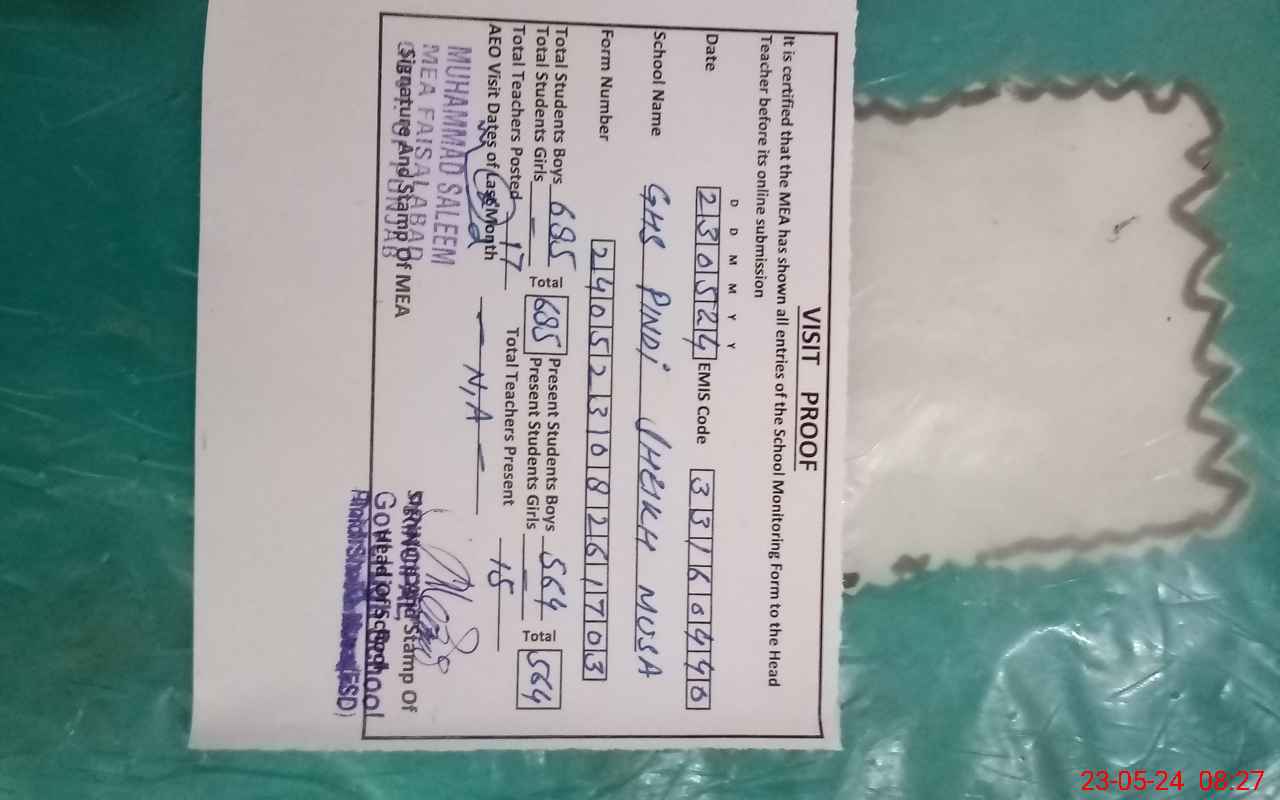 VISIT PROOF
It is certified that the MEA has shown all entries of the School Monitoring Form to the Head
Teacher before its online submission
D D M M Y Y
Date 230524 EMIS Code 33160440
School Name GHS PINDI SHEIKH MUSA
Form Number 24052308261703
Total Students Boys 685 Total 685 Present Students Boys 564 Total 564
Total Students Girls - Present Students Girls -
Total Teachers Posted 17 Total Teachers Present 15
AEO Visit Dates of Last Month - N,A -
MUHAMMAD SALEEM
MEA FAISALABAD
Signature And Stamp Of MEA
PUNJAB
PRINCIPAL
Stamp Of
Head of School
(FSD)
23-05-24 08:27